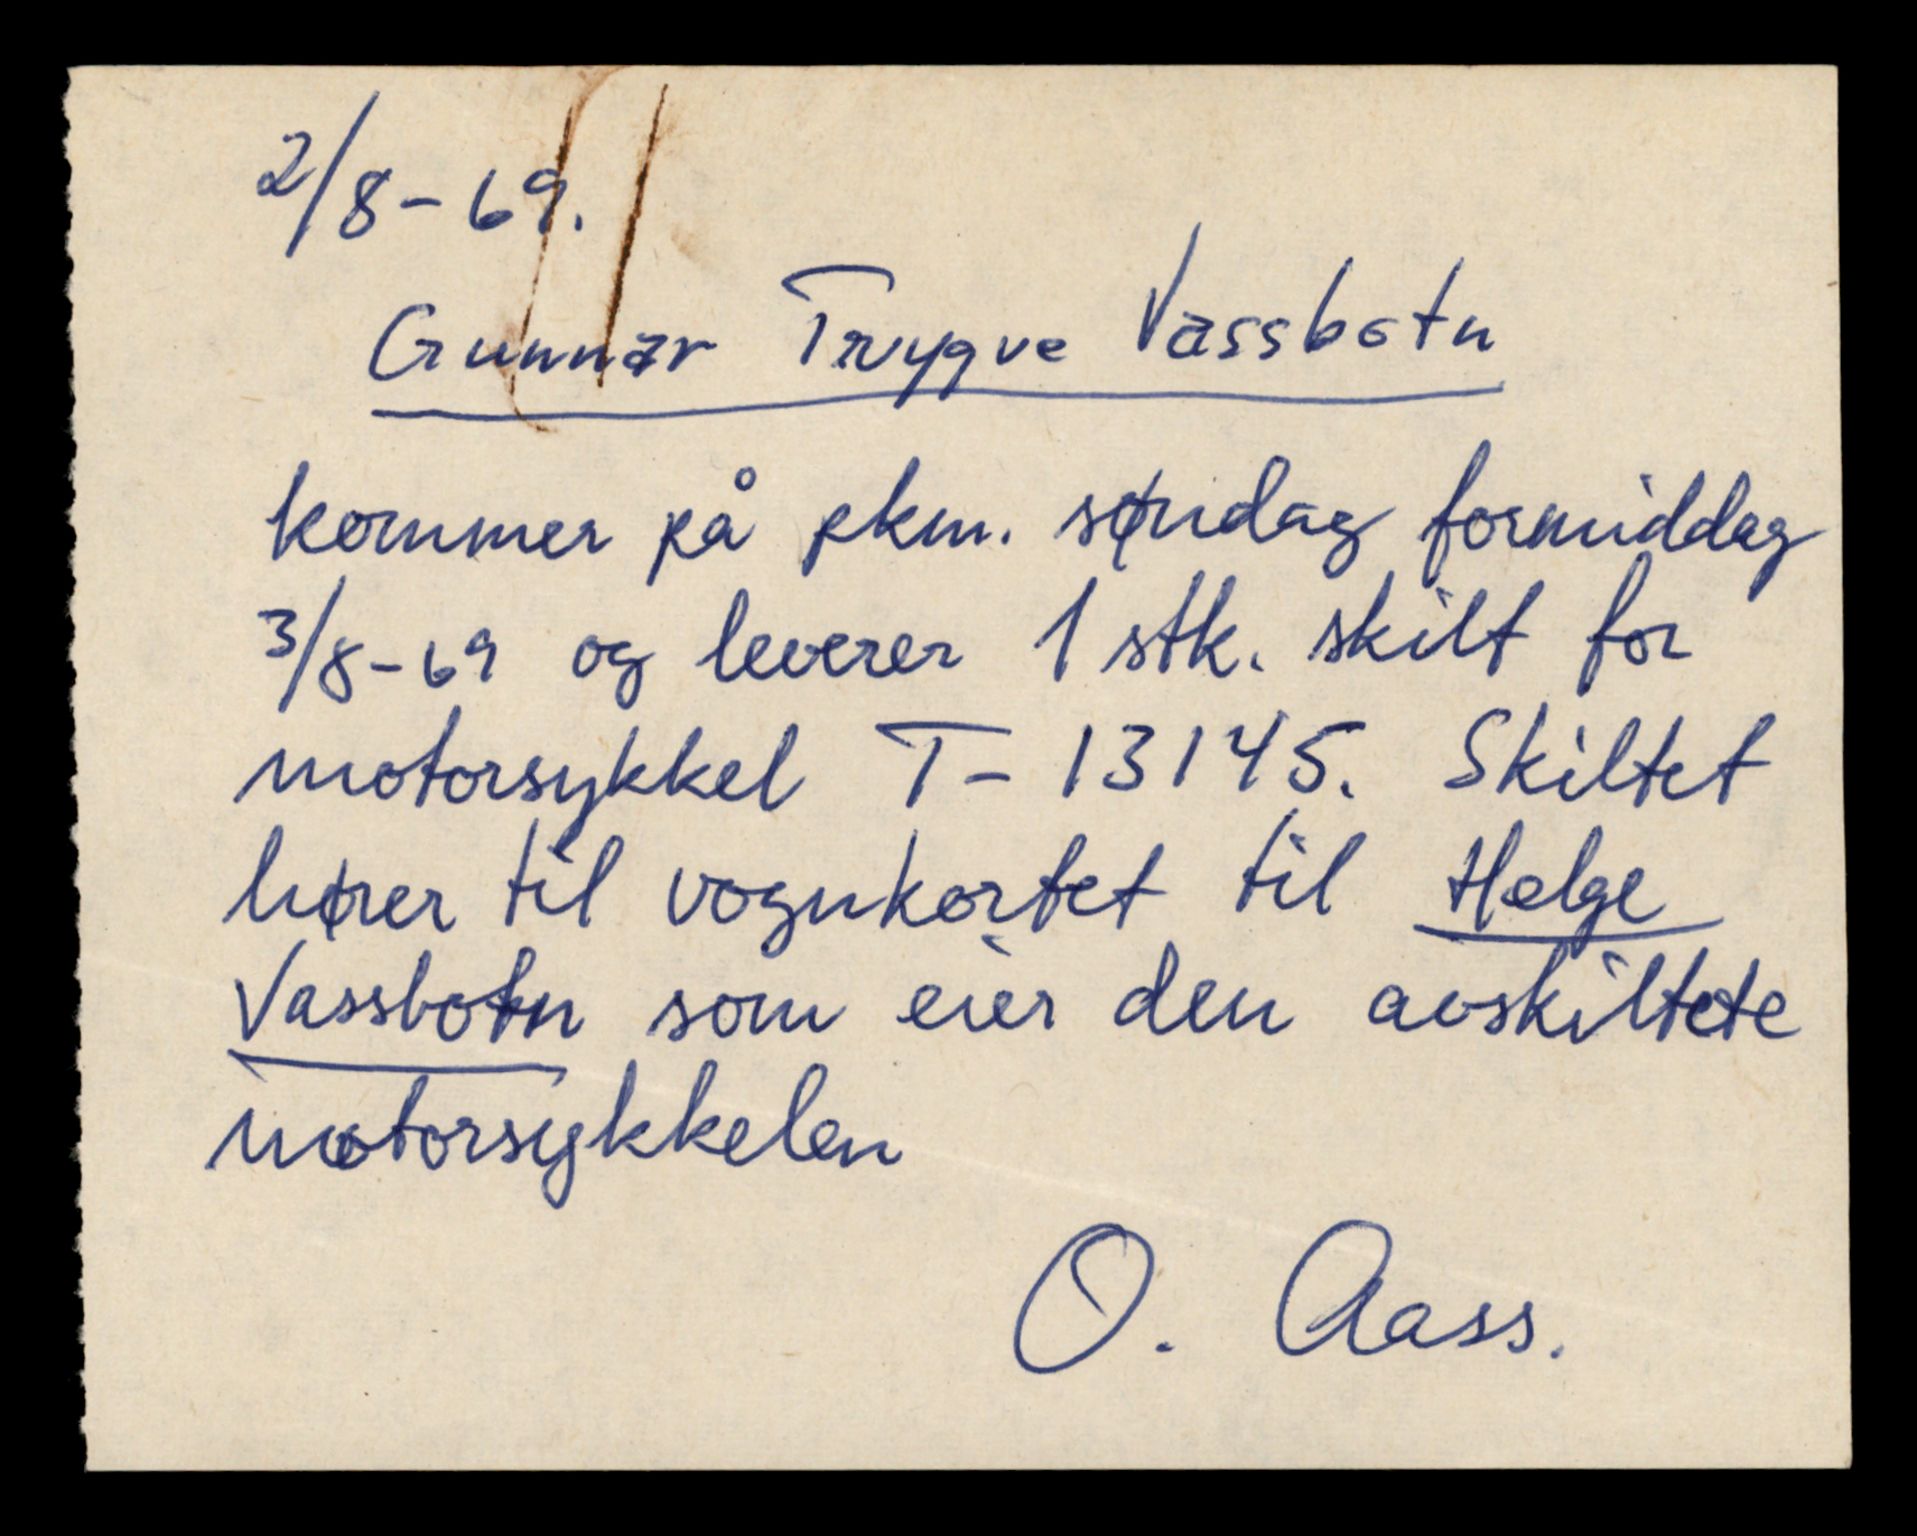 2/8-69.
Gunnar Trygve Vassbotn
kommer på pkm. søndag formiddag
3/8-69 og leverer 1 stk. skilt for
motorsykkel T-13145. Skiltet
hører til vognkortet til Helge
Vassbotn som eier den avskiltete
motorsykkelen
O. Aass.